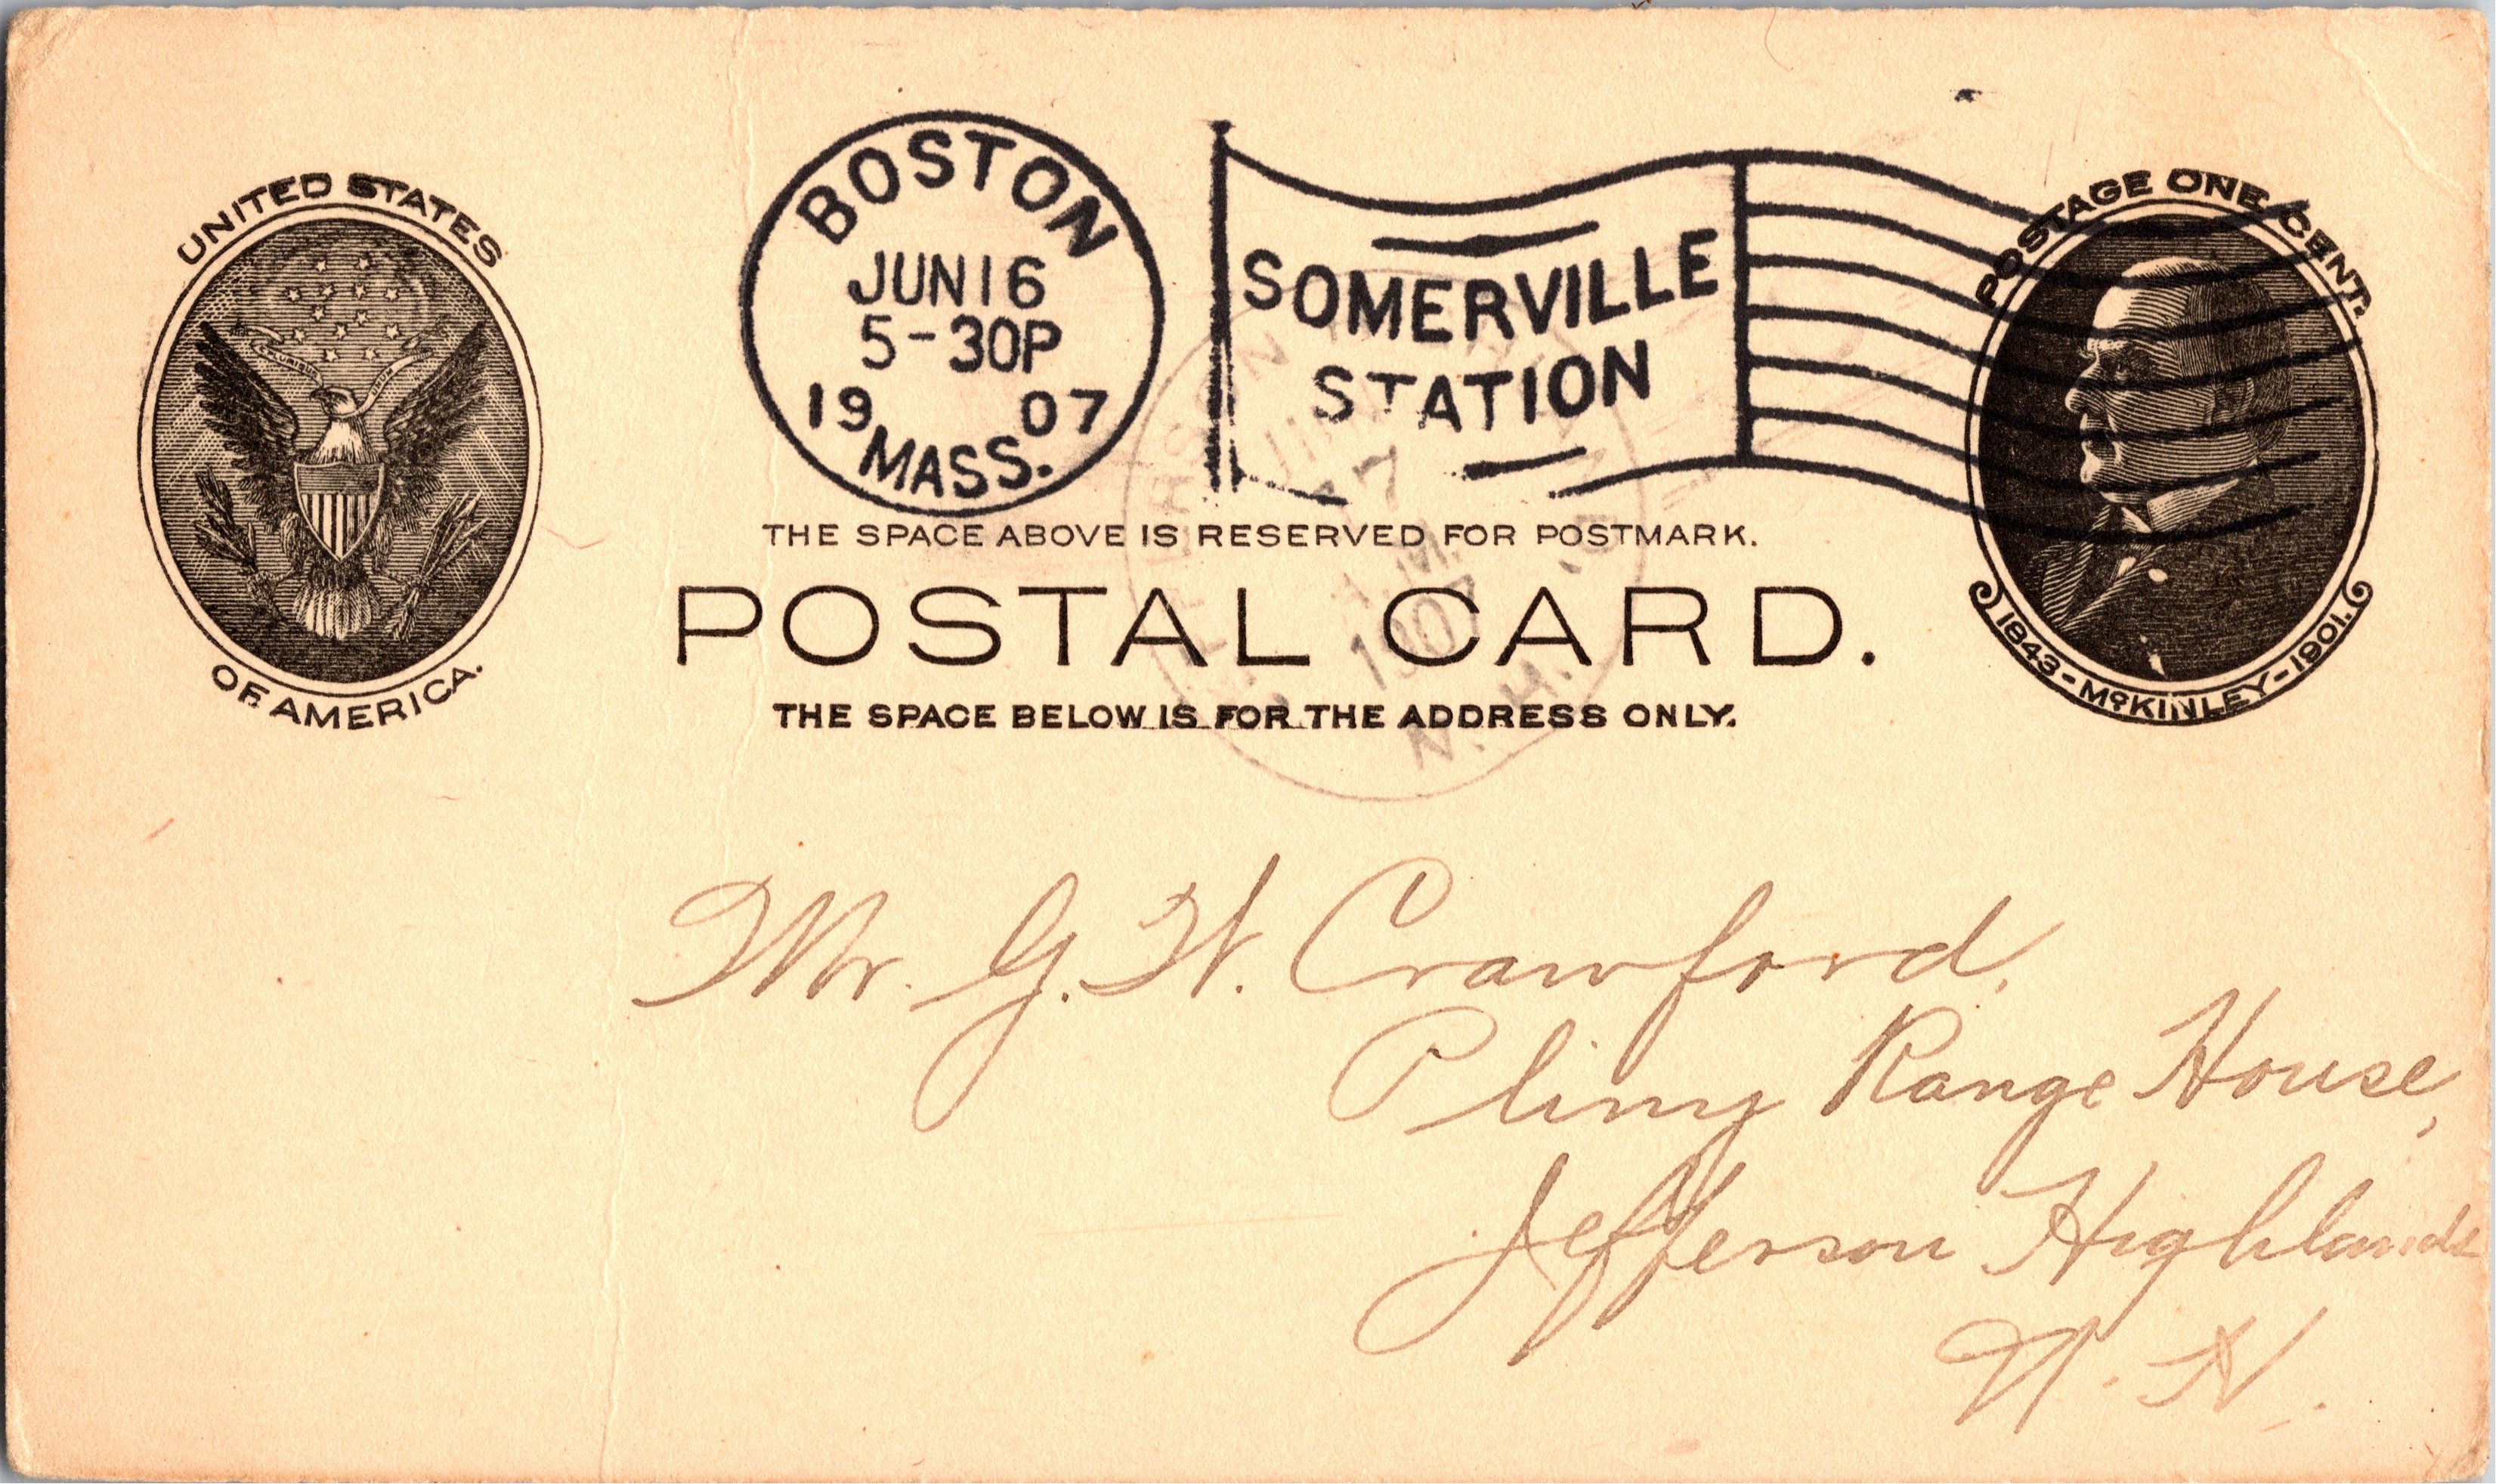 UNITED STATES
OF AMERICA.
BOSTON
JUN 16
5-30P
1907
MASS.
SOMERVILLE
STATION
POSTAGE ONE CENT.
1843-McKINLEY-1901.
17
A.M.
1907
N.H.
THE SPACE ABOVE IS RESERVED FOR POSTMARK.
POSTAL CARD.
THE SPACE BELOW IS FOR THE ADDRESS ONLY.
Mr. G. H. Crawford,
Pliny Range House,
Jefferson Highlands
N. H.